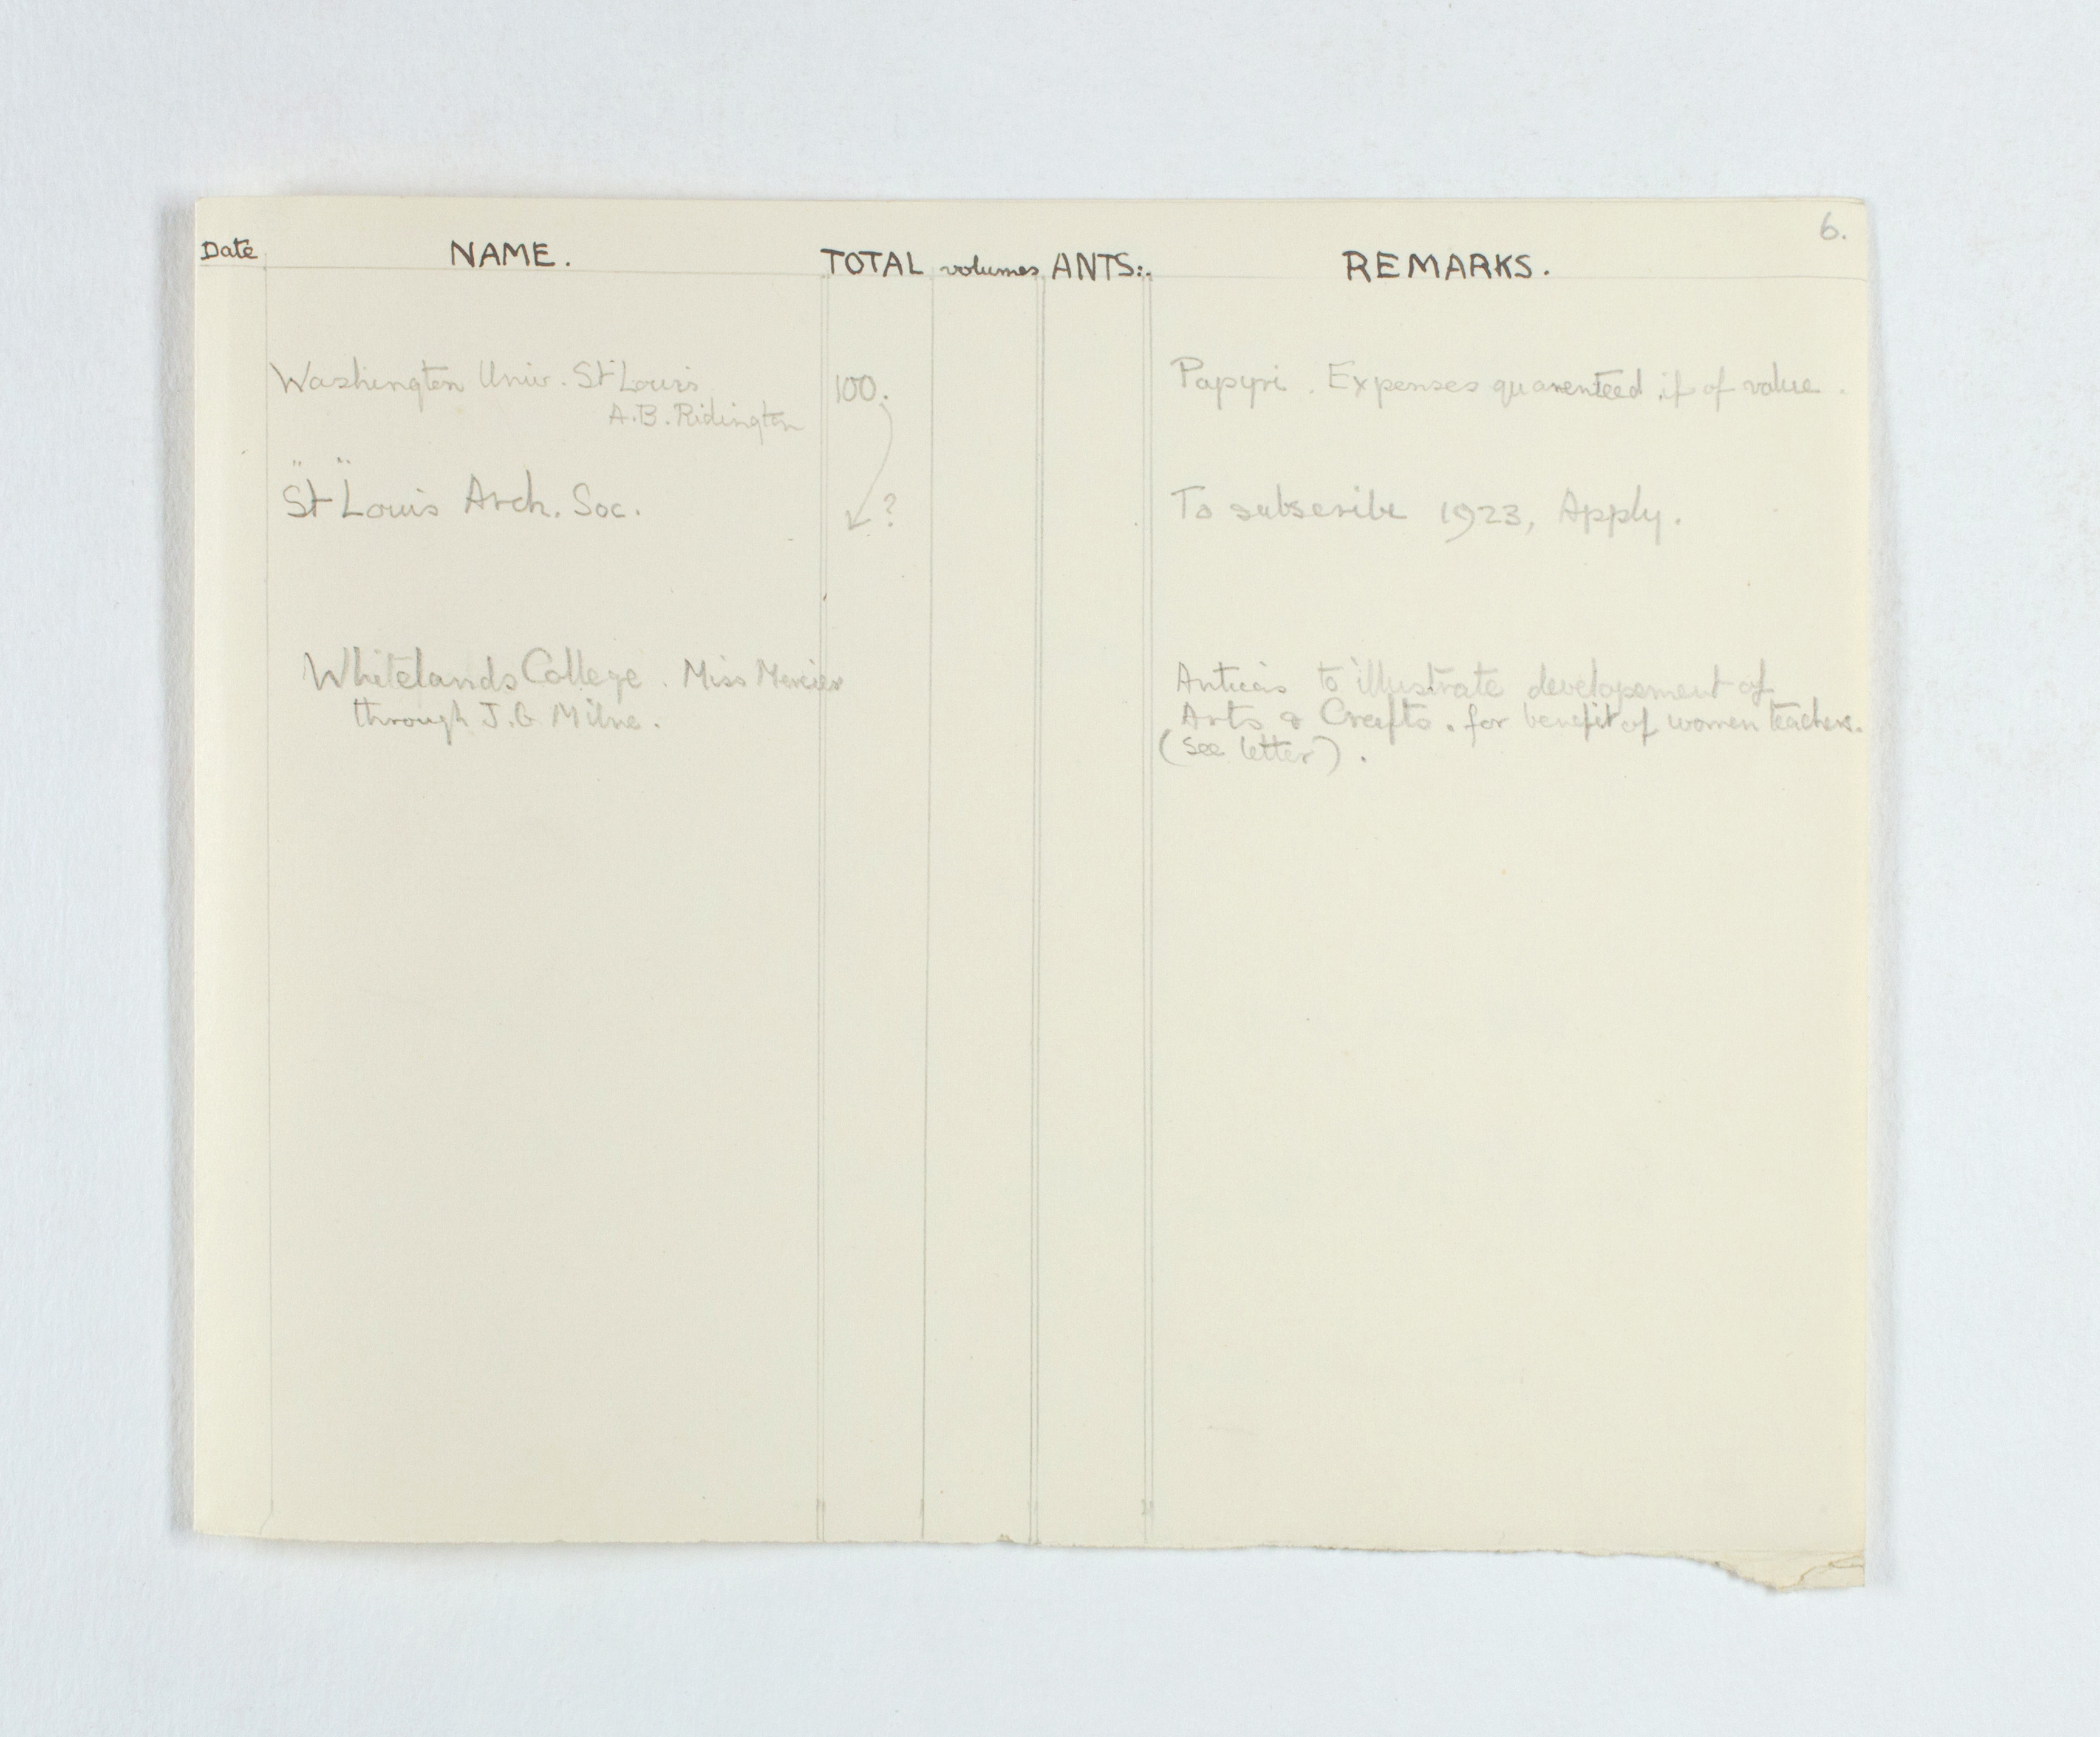 6.
Date NAME. TOTAL volumes ANTS:. REMARKS.
Washington Univ. St Louis 100. Papyri. Expenses quarenteed if of value.
A.B. Ridington
" "
St Louis Arch. Soc. ? To subscribe 1923, Apply.
Whitelands College. Miss Mercier Anticas to illustrate developement of
through J.G. Milne. Arts & Crafts. for benefit of women teachers.
(See letter).